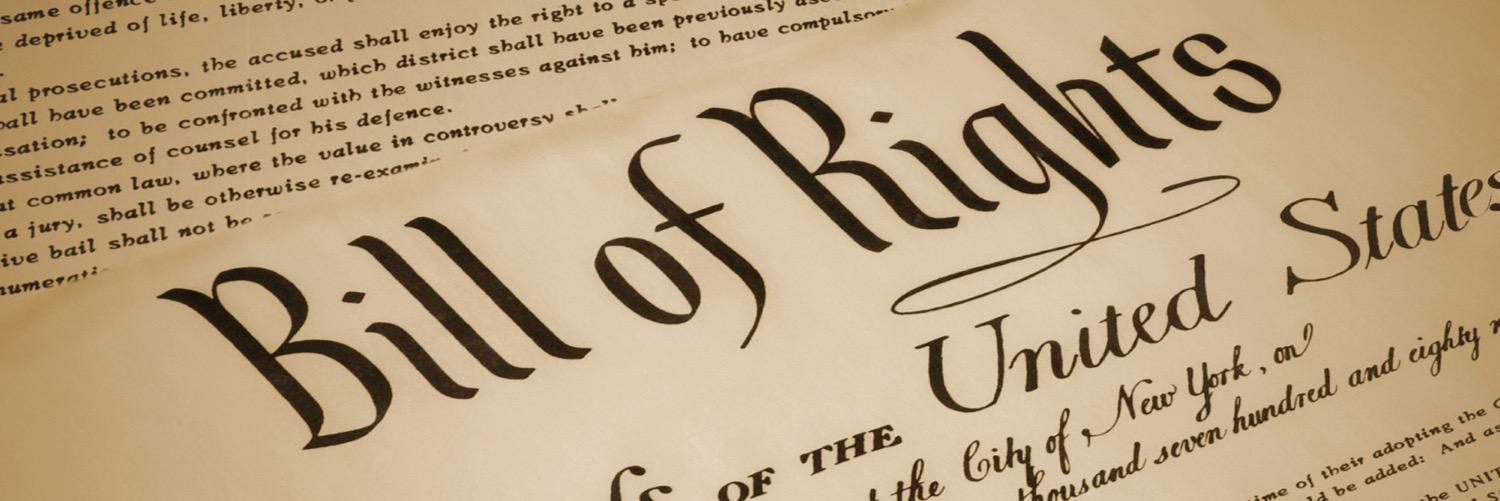 same offence
deprived of life, liberty,
prosecutions, the accused shall enjoy the right to a
have been committed, which district shall have been previously
to be confronted with the witnesses against him; to have
of counsel for his defence.
common law, where the value in controversy
a jury, shall be otherwise
bail shall not be
Bill of Rights
OF THE United States
the City of New York, on
thousand seven hundred and eighty
of their adopting the
be added: And
the